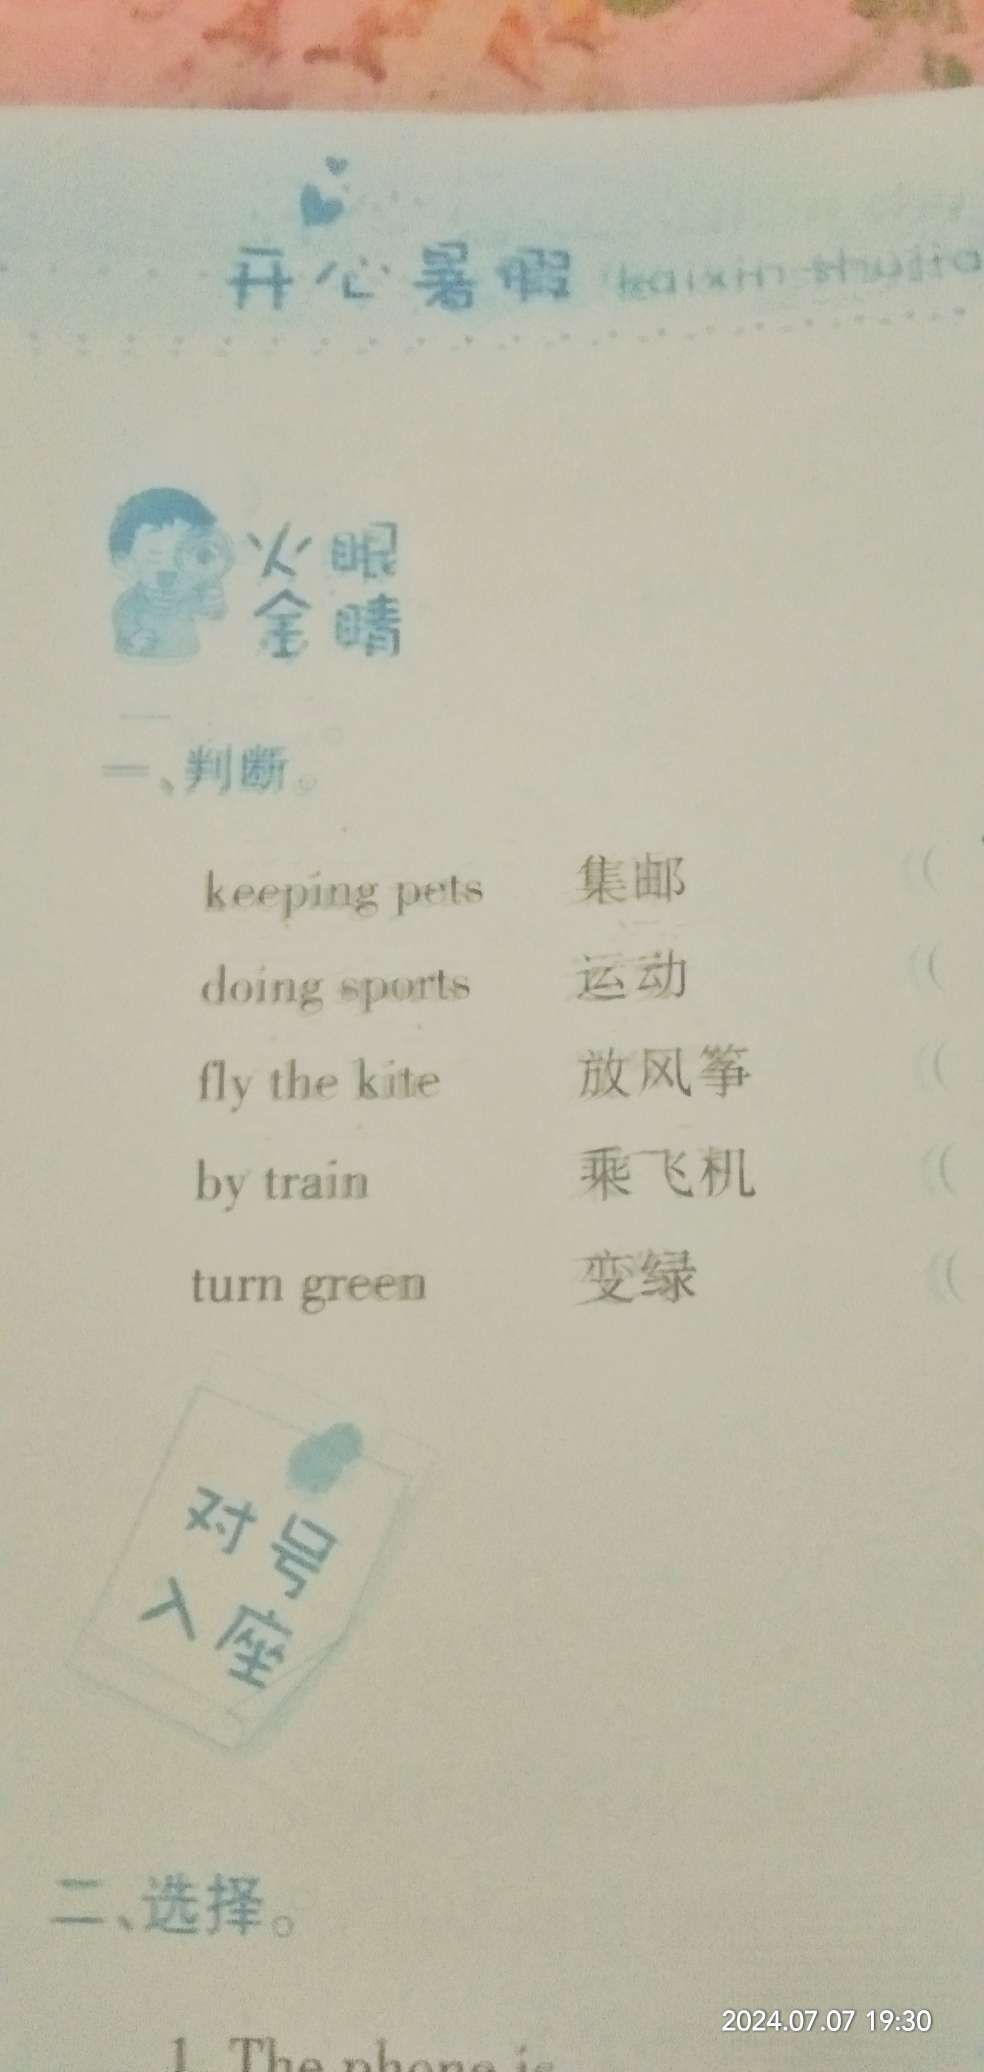 开心暑假 kaixin shujia
火眼
金睛
一、判断。
keeping pets 集邮 (
doing sports 运动 (
fly the kite 放风筝 (
by train 乘飞机 (
turn green 变绿 (
对号
入座
二、选择。
1. The phone is
2024.07.07 19:30